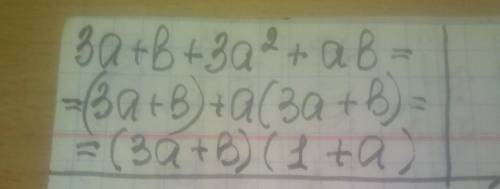 3a+b+3a²+ab=
=(3a+b)+a(3a+b)=
=(3a+b)(1+a)